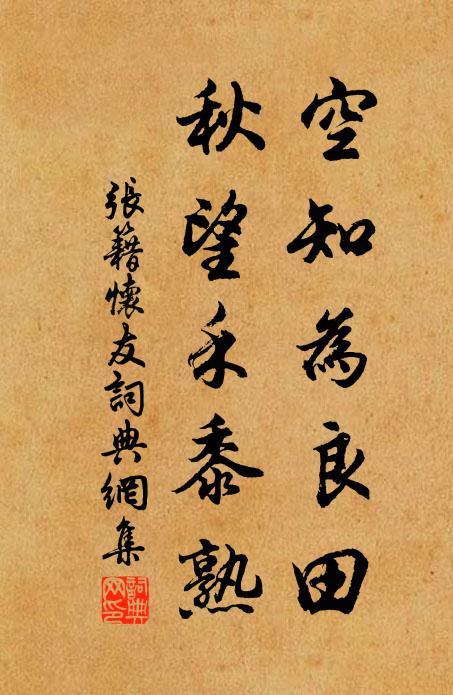 空知為良田
秋望禾黍熟
張籍懷友詞典網集
詞典网印